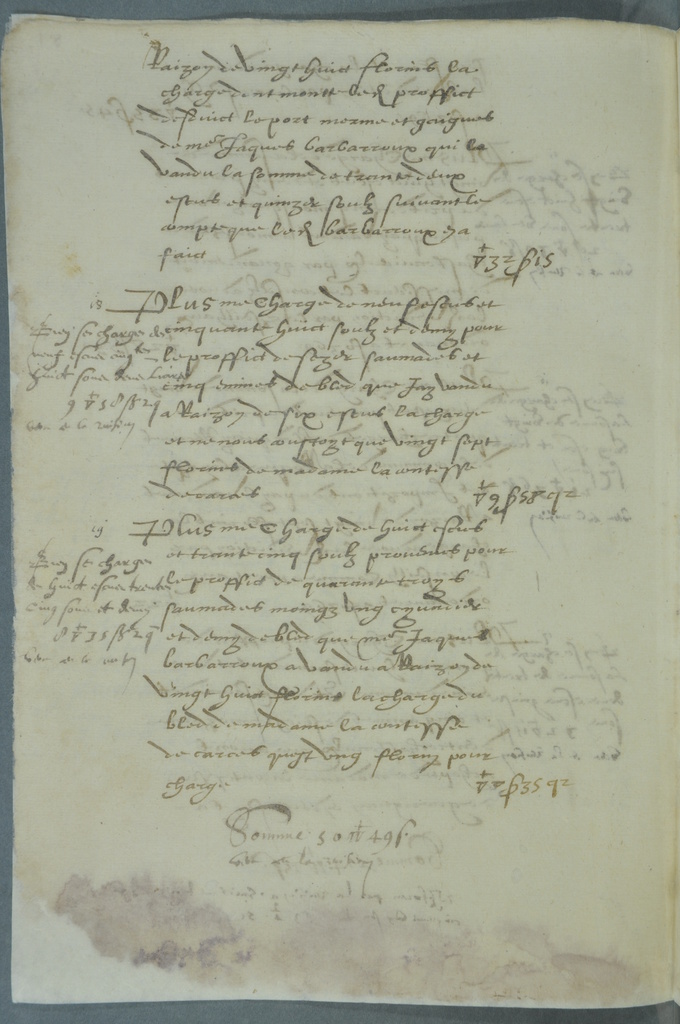 Raizon de vingt huict florins la
charge dont monte led proffict
desduict le port merme et gaigues
de me Jaques barbarroux qui la
vandu la somme de trante deux
escus et quinze soulz suivant le
compte que led barbarroux en a
faict ▽ 32 ß 15
18 PLus me charge de neuf escus et
cinquante huict soulz et demy pour
le proffict de seze saumades et
cinq emines de bled que Jay vandu
a Raizon de six escus la charge
et ne nous coustoyt que vingt sept
florins de madame la contesse
de carces ▽ 9 ß 58 q 2
se charge de
neuf escus
huict sous deux liards
9 ▽ 58 ß 2 q
19 PLus me charge de huict escus
et trante cinq soulz provenus pour
le proffict de quarante troys
saumades moingz ung cyvadier
et demy de bled que me Jaques
barbarroux a vandu a Raizon de
vingt huict florins la charge du
bled de madame la contesse
de carces quest ung florin pour
charge ▽ 8 ß 35 q 2
se charge
de huict escus trente
cinq sous et demy
8 ▽ 35 ß 2 q
Somme 50 ▽ 49 ß